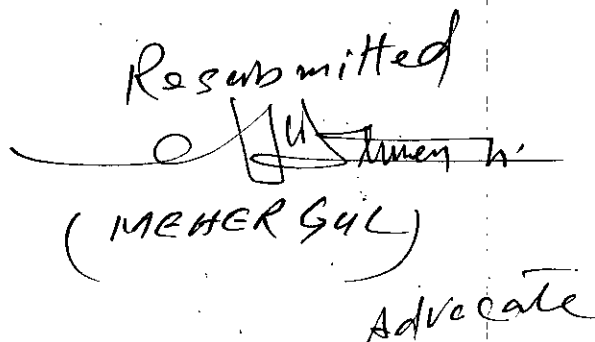 Resubmitted
(MEHER GUL)
Advocate